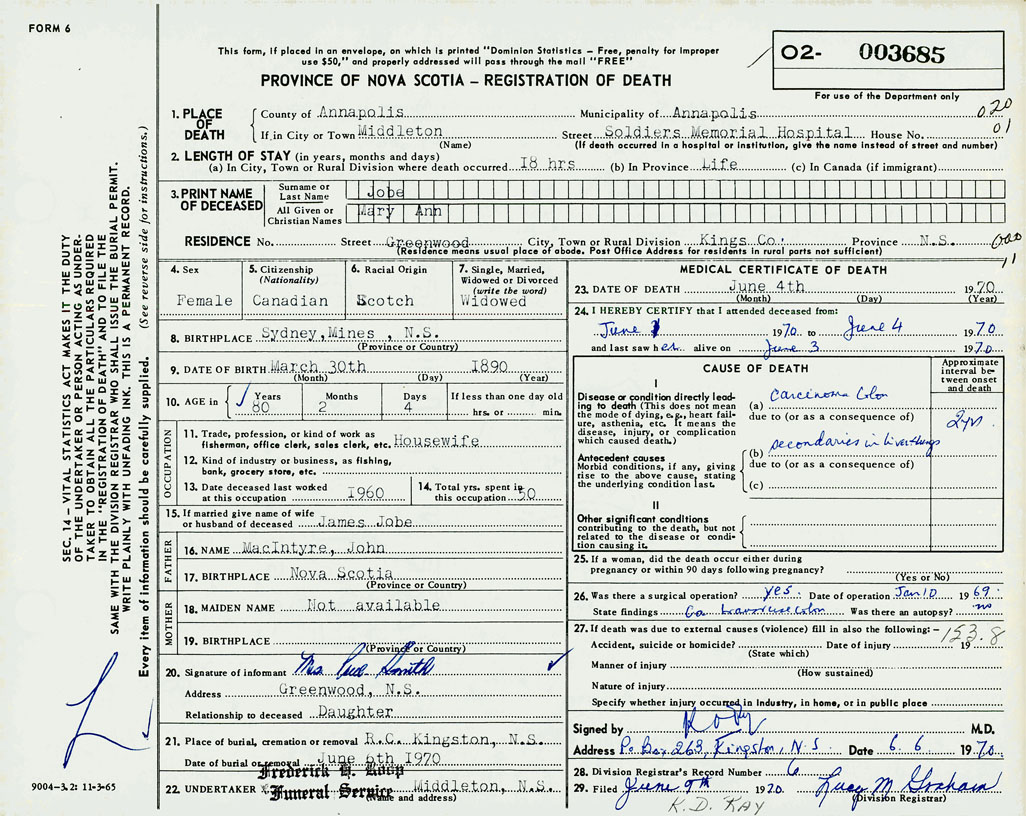 FORM 6
This form, if placed in an envelope, on which is printed "Dominion Statistics – Free, penalty for improper
use $50," and properly addressed will pass through the mail "FREE"
PROVINCE OF NOVA SCOTIA – REGISTRATION OF DEATH
O2- 003685
For use of the Department only
1. PLACE OF DEATH County of Annapolis Municipality of Annapolis 020
If in City or Town Middleton Street Soldiers Memorial Hospital House No. 01
(Name) (If death occurred in a hospital or institution, give the name instead of street and number)
2. LENGTH OF STAY (in years, months and days)
(a) In City, Town or Rural Division where death occurred 18 hrs (b) In Province Life (c) In Canada (if immigrant)
3. PRINT NAME OF DECEASED
Surname or Last Name Jobe
All Given or Christian Names Mary Ann
RESIDENCE No. Street Greenwood City, Town or Rural Division Kings Co. Province N.S.
(Residence means usual place of abode. Post Office Address for residents in rural parts not sufficient)
11
4. Sex
Female
5. Citizenship
(Nationality)
Canadian
6. Racial Origin
Scotch
7. Single, Married,
Widowed or Divorced
(write the word)
Widowed
8. BIRTHPLACE Sydney, Mines, N.S.
(Province or Country)
9. DATE OF BIRTH March 30th 1890
(Month) (Day) (Year)
10. AGE in Years Months Days If less than one day old
80 2 4 hrs. or min.
OCCUPATION
11. Trade, profession, or kind of work as
fisherman, office clerk, sales clerk, etc. Housewife
12. Kind of industry or business, as fishing,
bank, grocery store, etc.
13. Date deceased last worked
at this occupation 1960
14. Total yrs. spent in
this occupation 50
15. If married give name of wife
or husband of deceased James Jobe
FATHER
16. NAME MacIntyre, John
17. BIRTHPLACE Nova Scotia
(Province or Country)
MOTHER
18. MAIDEN NAME Not available
19. BIRTHPLACE
(Province or Country)
20. Signature of informant Mrs Smith
Address Greenwood, N.S.
Relationship to deceased Daughter
21. Place of burial, cremation or removal R.C. Kingston, N.S.
Date of burial or removal June 6th 1970
22. UNDERTAKER Frederick H. Roop
Funeral Service Middleton, N.S.
(Name and address)
MEDICAL CERTIFICATE OF DEATH
23. DATE OF DEATH June 4th 1970
(Month) (Day) (Year)
24. I HEREBY CERTIFY that I attended deceased from:
June 1970 to June 4 1970
and last saw her alive on June 3 1970
CAUSE OF DEATH
Approximate
interval be-
tween onset
and death
I
Disease or condition directly lead-
ing to death (This does not mean
the mode of dying, e.g., heart fail-
ure, asthenia, etc. It means the
disease, injury, or complication
which caused death.)
(a) carcinoma Colon
due to (or as a consequence of)
2 yrs
Antecedent causes
Morbid conditions, if any, giving
rise to the above cause, stating
the underlying condition last.
(b) secondaries in liver + lungs
due to (or as a consequence of)
(c)
II
Other significant conditions
contributing to the death, but not
related to the disease or condi-
tion causing it.
25. If a woman, did the death occur either during
pregnancy or within 90 days following pregnancy?
(Yes or No)
26. Was there a surgical operation? yes. Date of operation Jan 10 1969.
State findings Ca transverse colon Was there an autopsy? no
27. If death was due to external causes (violence) fill in also the following: – 153.8
Accident, suicide or homicide? Date of injury 19
(State which)
Manner of injury
(How sustained)
Nature of injury
Specify whether injury occurred in industry, in home, or in public place
Signed by M.D.
Address P.O. Box 263, Kingston, N.S. Date 6.6 1970
28. Division Registrar's Record Number 6
29. Filed June 9th 1970 Lucy M Graham
(Division Registrar)
K.D. KAY
SEC. 14 – VITAL STATISTICS ACT MAKES IT THE DUTY
OF THE UNDERTAKER OR PERSON ACTING AS UNDER-
TAKER TO OBTAIN ALL THE PARTICULARS REQUIRED
IN THE "REGISTRATION OF DEATH" AND TO FILE THE
SAME WITH THE DIVISION REGISTRAR WHO SHALL ISSUE THE BURIAL PERMIT.
WRITE PLAINLY WITH UNFADING INK. THIS IS A PERMANENT RECORD.
Every item of information should be carefully supplied. (See reverse side for instructions.)
9004-3.2: 11-3-65